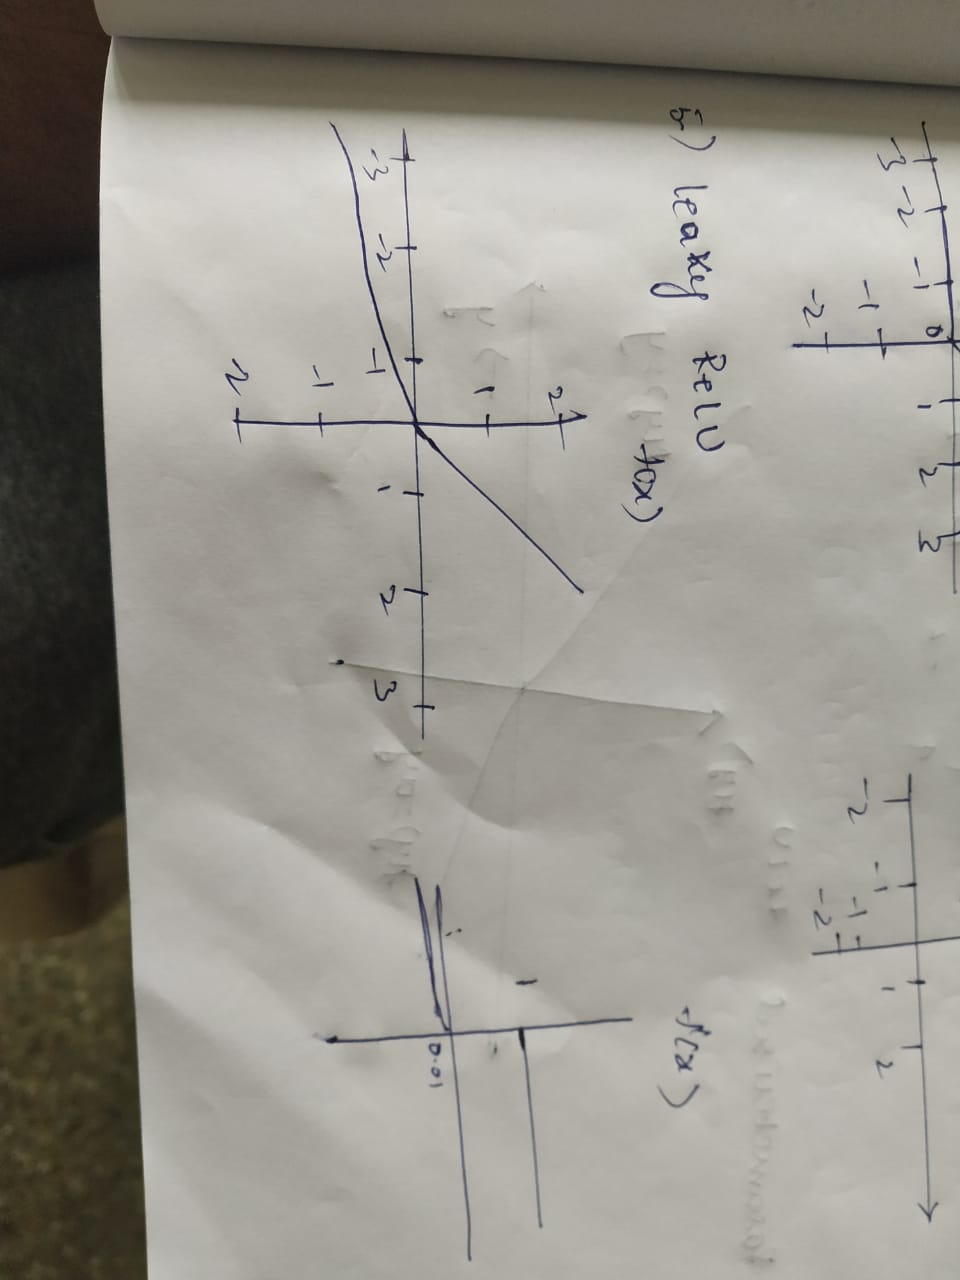 -3 -2 -1 0 1 2 3
-1
-2
-2 -1 1 2
-1
-2
5) Leaky ReLU
f(x)
f'(x)
2
1
-3 -2 -1 1 2 3
-1
-2
1
0.01